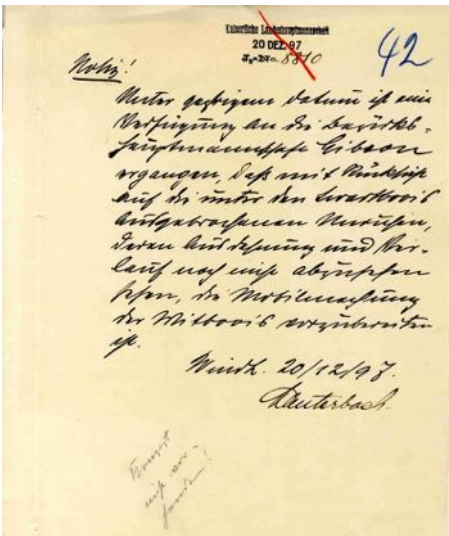 Kaiserliche Landeshauptmannschaft
20 DEZ. 97
J.-No. 8810
42
Notiz!
Unter gestrigem Datum ist eine
Verfügung an die Bezirks-
hauptmannschaft Gibeon
ergangen, daß mit Rücksicht
auf die unter den Swartboois
ausgebrochenen Unruhen,
deren Ausdehnung und Ver-
lauf noch nicht abzusehen
sehen, die Mobilmachung
der Witboois vorzubereiten
ist.
Windh. 20/12/97.
Lauterbach
Konzept
nicht vor-
handen!